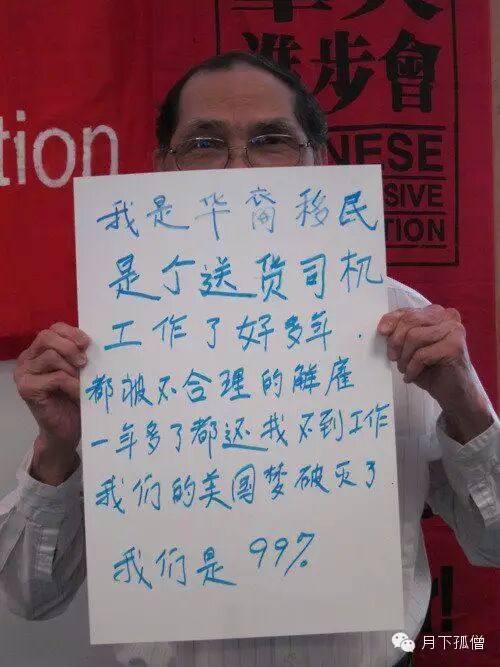 華人
進步會
NESE
SIVE
TION
tion
我是华裔移民
是个送货司机
工作了好多年.
都被不合理的解雇
一年多了都还找不到工作
我们的美国梦破灭了
我们是 99%
!
月下孤僧